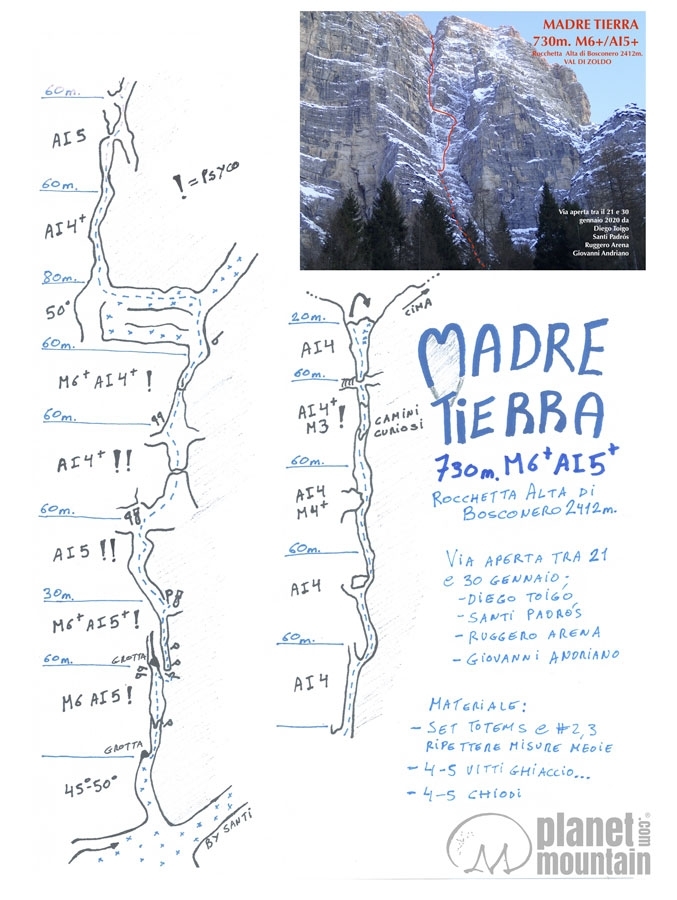 MADRE TIERRA
730m. M6+/AI5+
Rocchetta Alta di Bosconero 2412m.
VAL DI ZOLDO
Via aperta tra il 21 e 30
gennaio 2020 da
Diego Toigo
Santi Padrós
Ruggero Arena
Giovanni Andriano
60m.
AI5
! = PSYCO
60m.
AI4+
80m.
50°
60m.
M6+ AI4+ !
60m.
AI4+ !!
60m.
AI5 !!
30m.
M6+ AI5+ !
60m.
GROTTA
M6 AI5 !
GROTTA
45°-50°
BY SANTI
CIMA
20m.
AI4
60m.
AI4+
M3 !
CAMINI
CURIOSI
60m.
AI4
M4+
60m.
AI4
60m.
AI4
MADRE
TIERRA
730m. M6+ AI5+
ROCCHETTA ALTA DI
BOSCONERO 2412m.
VIA APERTA TRA 21
e 30 GENNAIO:
- DIEGO TOIGO
- SANTI PADRÓS
- RUGGERO ARENA
- GIOVANNI ANDRIANO
MATERIALE:
- SET TOTEMS e #2,3
RIPETTERE MISURE MEDIE
- 4-5 VITTI GHIACCIO...
- 4-5 CHIODI
planet
mountain
.com
®